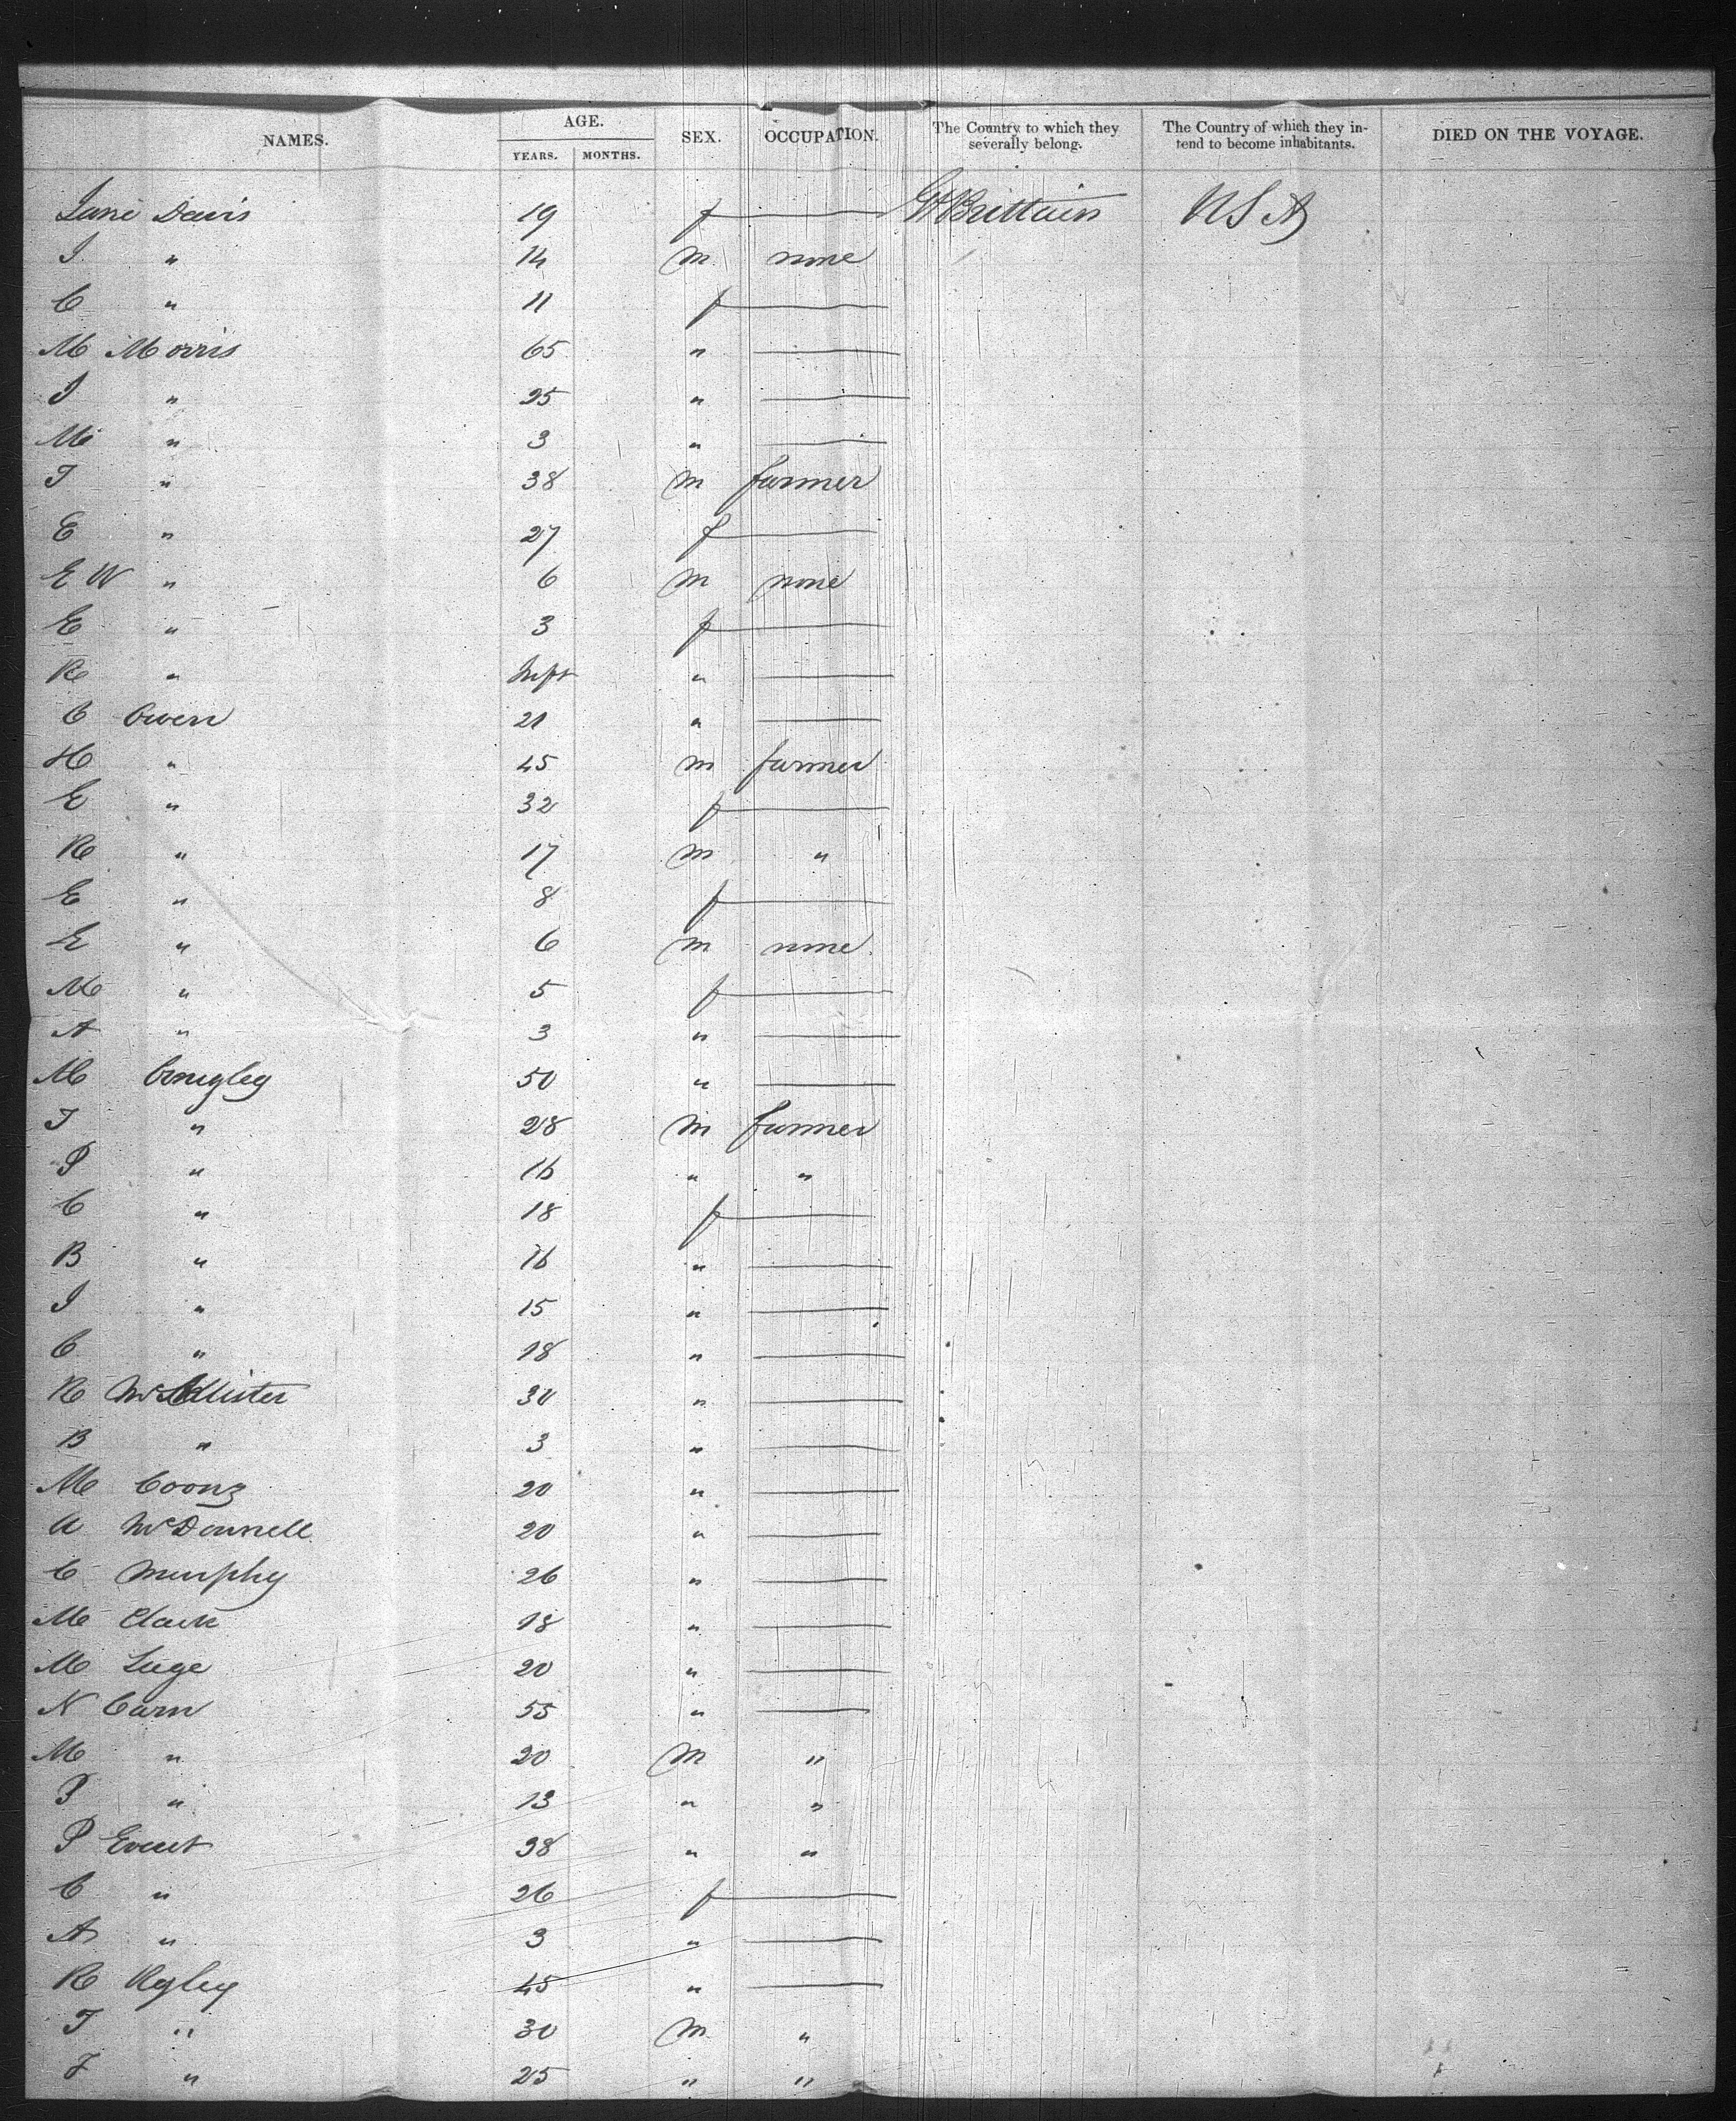 NAMES. AGE. YEARS. MONTHS. SEX. OCCUPATION. The Country to which they severally belong. The Country of which they intend to become inhabitants. DIED ON THE VOYAGE.
Jane Davis 19 f — Gt Brittain U S A
J " 14 m none
C " 11 f —
M Morris 65 " —
J " 25 " —
M " 3 " —
T " 38 m farmer
E " 27 f —
E W " 6 m none
E " 3 f —
R " Inft " —
C Owen 21 " —
H " 45 m farmer
E " 32 f —
R " 17 m "
E " 8 f —
E " 6 m none
M " 5 f —
A " 3 " —
M 50 " —
T " 28 m farmer
P " 16 " "
C " 18 f —
B " 16 " —
J " 15 " —
C " 18 " —
R McAllister 30 " —
B " 3 " —
M Coony 20 " —
A McDonnell 20 " —
C Murphy 26 " —
M Clark 18 " —
M 20 " —
N Carn 55 " —
M " 20 m "
P " 13 " "
P 38 " "
C " 26 f —
A " 3 " —
R 45 " —
T " 30 m "
J " 25 " "